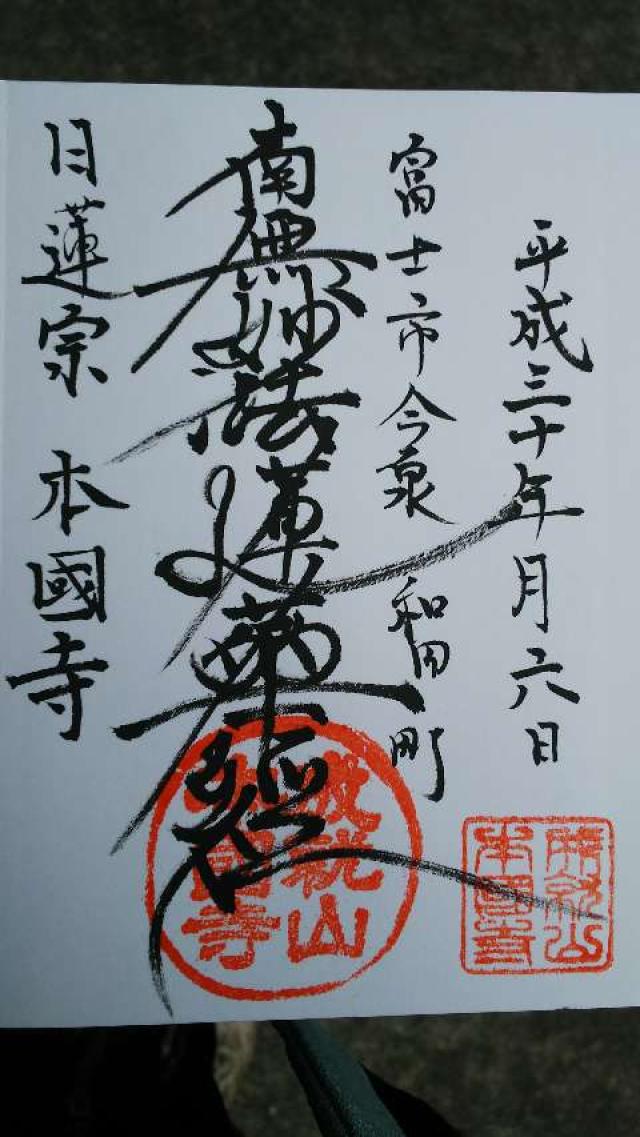 平成三十年月六日
富士市今泉 和田町
南無妙法蓮華経
日蓮宗 本國寺
山
本國寺